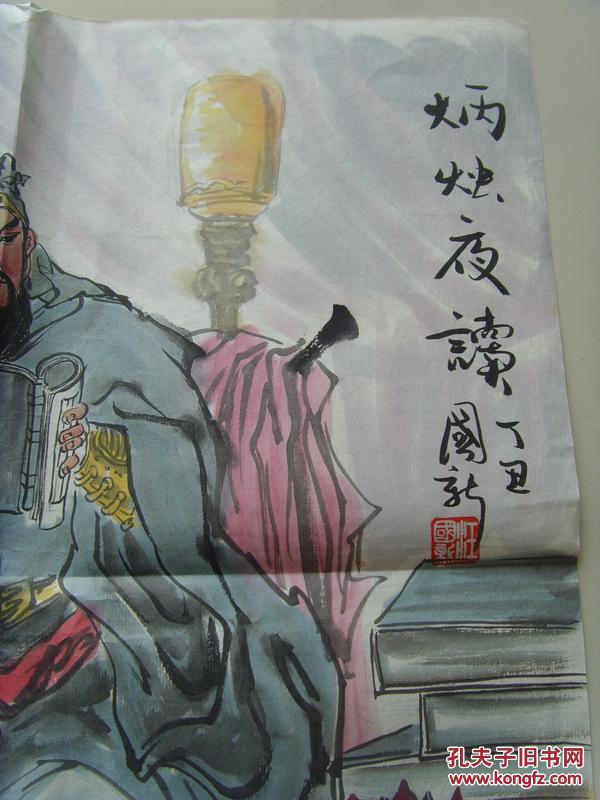 炳烛夜讀
丁丑
國新
汪國新
孔夫子旧书网
www.kongfz.com